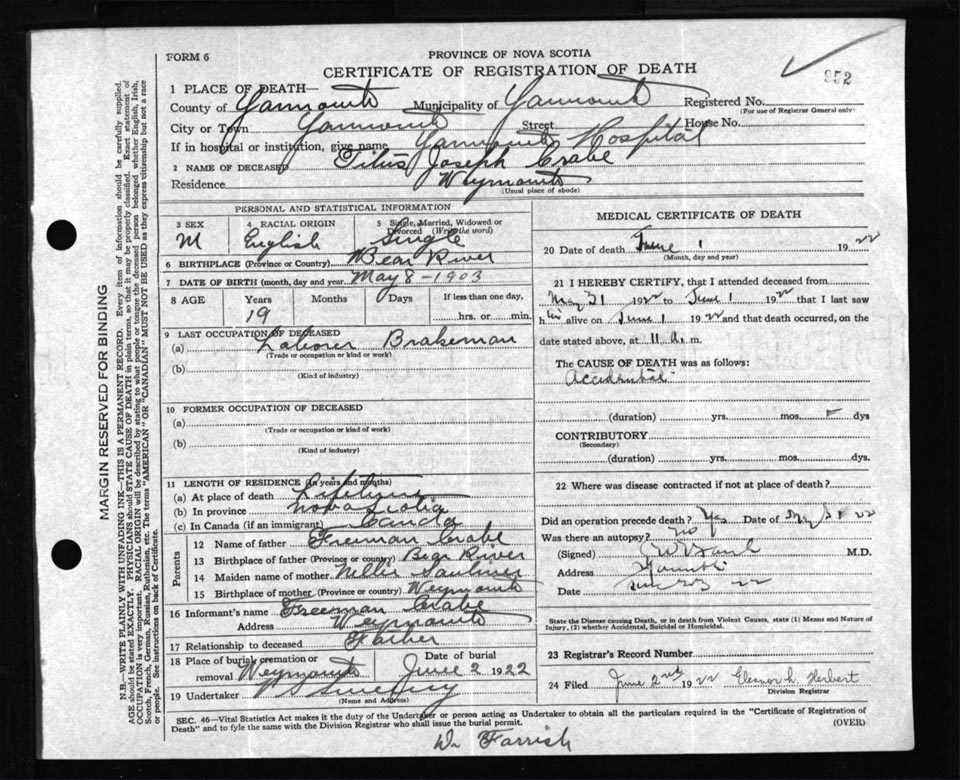 FORM 6
PROVINCE OF NOVA SCOTIA
CERTIFICATE OF REGISTRATION OF DEATH
352
1 PLACE OF DEATH—
County of Yarmouth Municipality of Yarmouth Registered No.
(For use of Registrar General only)
City or Town Yarmouth Street House No.
If in hospital or institution, give name Yarmouth Hospital
2 NAME OF DECEASED Titus Joseph Crabe
Residence Weymouth
(Usual place of abode)
PERSONAL AND STATISTICAL INFORMATION
3 SEX 4 RACIAL ORIGIN 5 Single, Married, Widowed or Divorced (Write the word)
M English Single
6 BIRTHPLACE (Province or Country) Bear River
7 DATE OF BIRTH (month, day and year) May 8-1903
8 AGE Years Months Days If less than one day,
19 hrs. or min.
9 LAST OCCUPATION OF DECEASED
(a) Laborer Brakeman
(Trade or occupation or kind or work)
(b)
(Kind of industry)
10 FORMER OCCUPATION OF DECEASED
(a)
(Trade or occupation or kind of work)
(b)
(Kind of industry)
11 LENGTH OF RESIDENCE (In years and months)
(a) At place of death Lifetime
(b) In province Nova Scotia
(c) In Canada (if an immigrant) Canada
Parents
12 Name of father Freeman Crabe
13 Birthplace of father (Province or country) Bear River
14 Maiden name of mother Nellie Saulnier
15 Birthplace of mother (Province or country) Weymouth
16 Informant's name Freeman Crabe
Address Weymouth
17 Relationship to deceased Father
18 Place of burial, cremation or removal Weymouth Date of burial June 2 1922
19 Undertaker
(Name and Address)
MEDICAL CERTIFICATE OF DEATH
20 Date of death June 1 1922
(Month, day and year)
21 I HEREBY CERTIFY, that I attended deceased from
May 21 1922 to June 1 1922 that I last saw
him alive on June 1 1922 and that death occurred, on
date stated above, at 11 a. m.
The CAUSE OF DEATH was as follows:
Accidental
(duration) yrs. mos. dys
CONTRIBUTORY
(Secondary)
(duration) yrs. mos. dys.
22 Where was disease contracted if not at place of death?
Did an operation precede death? Yes Date of 22
Was there an autopsy? No
(Signed) M.D.
Address Yarmouth
Date 22
State the Disease causing Death, or in death from Violent Causes, state (1) Means and Nature of Injury, (2) whether Accidental, Suicidal or Homicidal.
23 Registrar's Record Number
24 Filed June 2nd 1922 Eleanor L. Herbert
Division Registrar
SEC. 46—Vital Statistics Act makes it the duty of the Undertaker or person acting as Undertaker to obtain all the particulars required in the "Certificate of Registration of
Death" and to fyle the same with the Division Registrar who shall issue the burial permit. (OVER)
Farrish
MARGIN RESERVED FOR BINDING
N.B.—WRITE PLAINLY WITH UNFADING INK—THIS IS A PERMANENT RECORD. Every item of information should be carefully supplied.
AGE should be stated EXACTLY. PHYSICIANS should STATE CAUSE OF DEATH in plain terms, so that it may be properly classified. Exact statement of
OCCUPATION is very important. RACIAL ORIGIN will be described by stating to what people or tongue the deceased person belonged whether English, Irish,
Scotch, French, German, Russian, Ruthenian, etc. The terms "AMERICAN" OR "CANADIAN" MUST NOT BE USED as they express citizenship but not a race
or people. See instructions on back of Certificate.